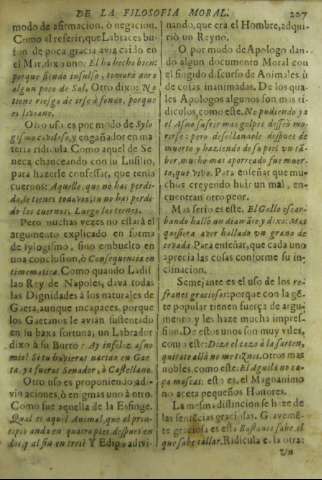 DE LA FILOSOFIA MORAL. 207
modo de afirmacion, ò negacion.
Como al referir, que Libraces bu-
fon de poca gracia avia caido en
el Mar, dixo uno: El ha hecho bien:
porque siendo insulso, tomarà aora
algun poco de Sal. Otro dixo: No
tiene riesgo de irse à fondo, porque
es liviano.
Otro uso es por modo de Sylo-
gismo caviloso, y engañador en ma-
teria ridicula. Como aquel de Se-
neca chanceando con su Lusilio,
para hazerle confessar, que tenia
cuernos: Aquello, que no has perdi-
do, le tienes todavia; tu no has perdi-
do los cuernos. Luego los tienes.
Pero muchas vezes no estarà el
argumento explicado en forma
de sylogismo, sino embuelto en
una conclusion, ò Consequencia en-
timematica. Como quando Ladis-
lao Rey de Napoles, dava todas
las Dignidades à los naturales de
Gaeta, aunque incapaces, porque
los Gaetanos le avian sustentado
en su baxa fortuna; un Labrador
dixo à su Burro: Ay infeliz asno
mio! Si tu huvieras nacido en Gae-
ta, ya fueras Senador, ò Castellano.
Otro uso es proponiendo adi-
vinaciones, ò enigmas uno à otro.
Como fue aquella de la Esfinge.
Qual es aquel Animal, que al prin-
cipio anda en quatro pies, despues en
dos, y al fin en tres? Y Edipo adivi-
nando, que era el Hombre, adqui-
riò un Reyno.
O por modo de Apologo dan-
do algun documento Moral con
el fingido discurso de Animales ò
de cosas inanimadas. De los qua-
les Apologos algunos son mas ri-
diculos, como este. No pudiendo ya
el Asno sufrir mas golpes deseò mo-
rirse; pero desollandole despues de
muerto y haziendo de su piel un ta-
bor, mucho mas aporreado fue muer-
to, que vivo. Para enseñar que mu-
chos creyendo huir un mal, en-
cuentran otro peor.
Mas serio es este. El Gallo escar-
bando hallò un diamante, y dixo: Mas
quisiera aver hallado un grano de
cevada. Para enseñar, que cada uno
aprecia las cosas conforme su in-
clinacion.
Semejante es el uso de los re-
franes graciosos: porque con la gẽ-
te popular tienen fuerça de argu-
mento y les haze mucha impres-
sion. De estos unos son muy viles,
como este: Dixo el cazo à la sarten,
quitate allà no me tiznes. otros mas
nobles, como este. El Aguila no ca-
ça moscas: esto es, el Magnanimo
no acepta pequeños Honores.
La mesma distincion se haze de
las sentencias graciosas. Gravemẽ-
te graciosa es esta Bastante sabe el
que sabe callar. Ridicula es la otra:
Un